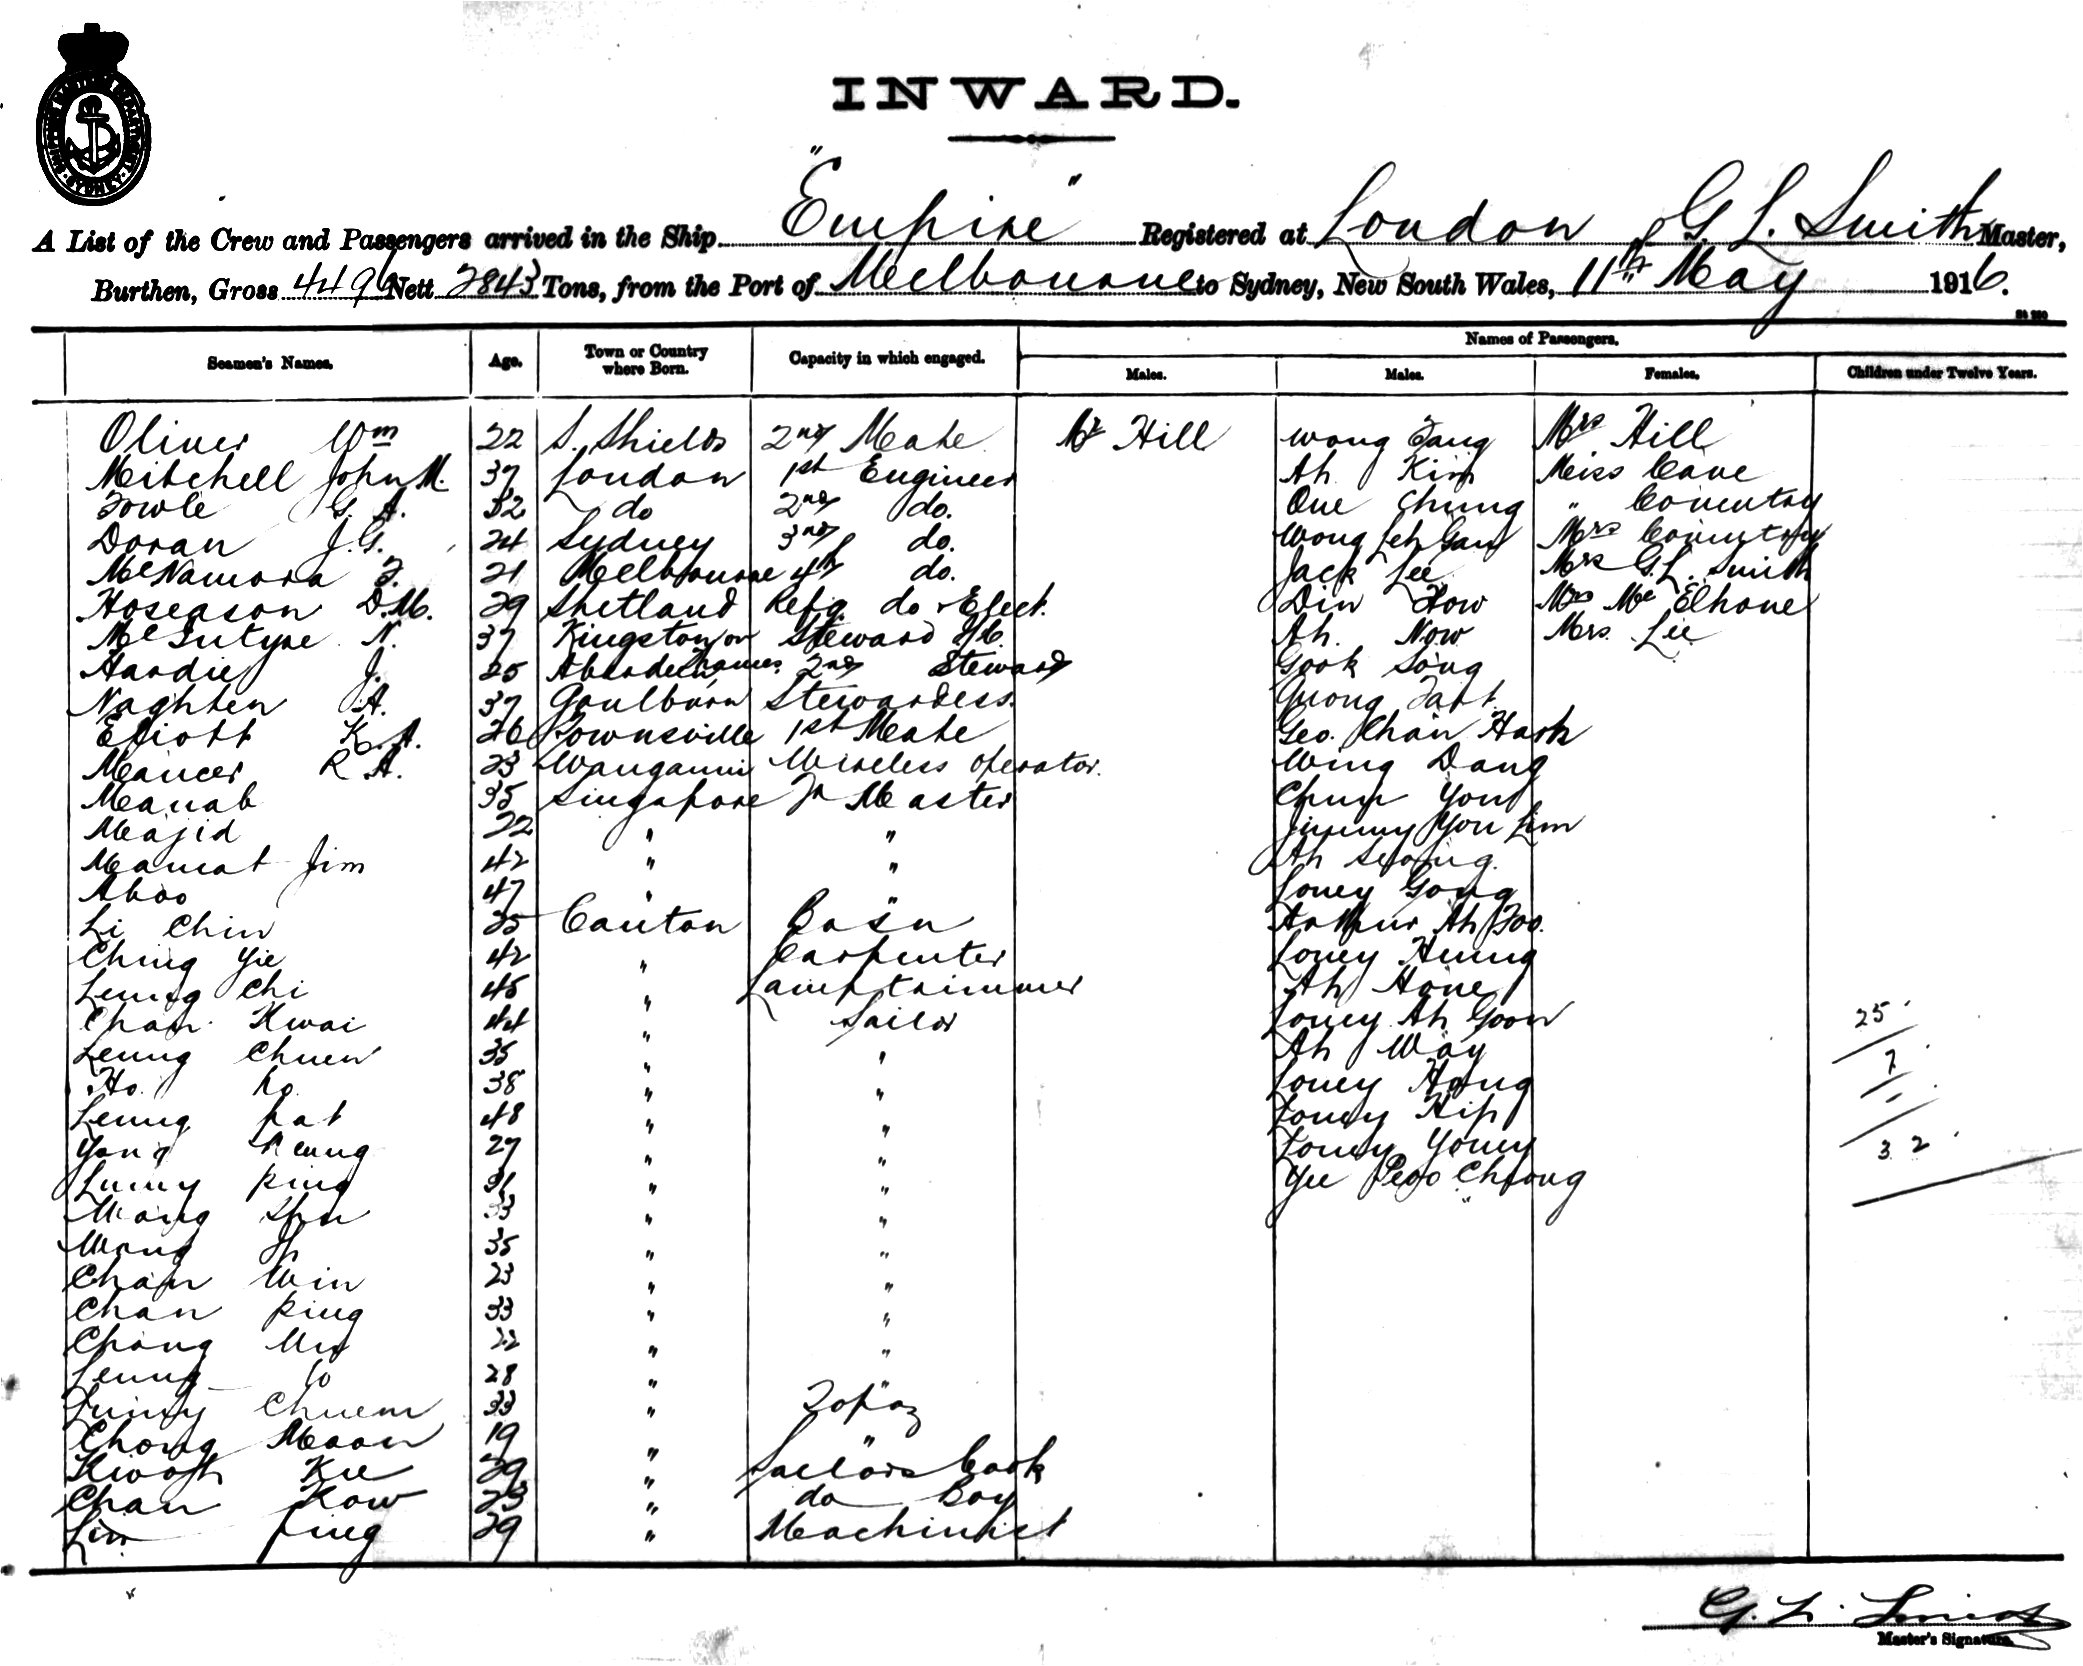 INWARD.
A List of the Crew and Passengers arrived in the Ship "Empire" Registered at London G L. Smith Master,
Burthen, Gross 4496 Nett 2843 Tons, from the Port of Melbourne to Sydney, New South Wales, 11th May 1916.
Seamen's Names. Age. Town or Country where Born. Capacity in which engaged. Names of Passengers.
Males. Males. Females. Children under Twelve Years.
Oliver Wm 22 S. Shields 2nd Mate Mr Hill Wong Fang Mrs Hill
Mitchell John M. 37 London 1st Engineer Ah Kim Miss Cave
Fowle G. A. 32 do 2nd do. One Chung " Coventry
Doran J.G. 24 Sydney 3rd do. Wong Leh Gan Mrs Coventry
McNamara F. 21 Melbourne 4th do. Jack Lee Mrs G.L. Smith
Hoseason D.M. 29 Shetland Refg. do & Elect. Din How Mrs McElhone
McIntyre N. 37 Kingston on Thames Steward I/C. Ah Now Mrs. Lee
Hardie J. 25 Aberdeen 2nd Steward Gook Song
Naghten A. 37 Goulburn Stewardess. Quong Tart
Eliott K. A. 26 Townsville 1st Mate Geo. Chan Hash
Mancer R A. 23 Wanganui Wireless operator. Wing Dang
Manab 35 Singapore Qr Master Chun Yong
Majid 22 " " Jimmy You Lim
Mamat Jim 42 " " Ah Seong.
Aboo 47 " " Loney Gong
Li Chin 25 Canton Bosn Arthur Ah Foo.
Ching Yie 42 " Carpenter Loney Hung
Leung Chi 45 " Lamptrimmer Ah Hone
Chan Kwai 44 " Sailor Loney Ah Goon 25
Leung Chuen 35 " " Ah Way
Ho Po 38 " " Loney Hong 7
Leung Pat 48 " " Loney Hip -
Yong Keung 27 " " Loney Youey 32
Lumy King 31 " " Yee Peoo Cheong
Wong Shu 33 " "
Wong 35 " "
Chan Win 23 " "
Chan King 33 " "
Chong 22 " "
Leung 28 " "
Lumy Chuem 33 " Topaz
Chong Maan 19 " "
Kwoh Kee 29 " Sailors Cook
Chan Kow 23 " do Boy
Lim Ping 29 " Machinist
G. L. Smith
Master's Signature.